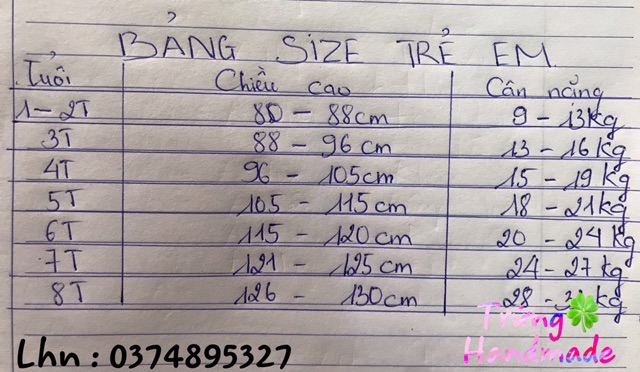 BẢNG SIZE TRẺ EM
Tuổi Chiều cao Cân nặng
1-2T 80 - 88cm 9 - 13kg
3T 88 - 96cm 13 - 16kg
4T 96 - 105cm 15 - 19kg
5T 105 - 115cm 18 - 21kg
6T 115 - 120cm 20 - 24kg
7T 121 - 125cm 24 - 27kg
8T 126 - 130cm 28 - kg
Trang
Handmade
Lhn : 0374895327